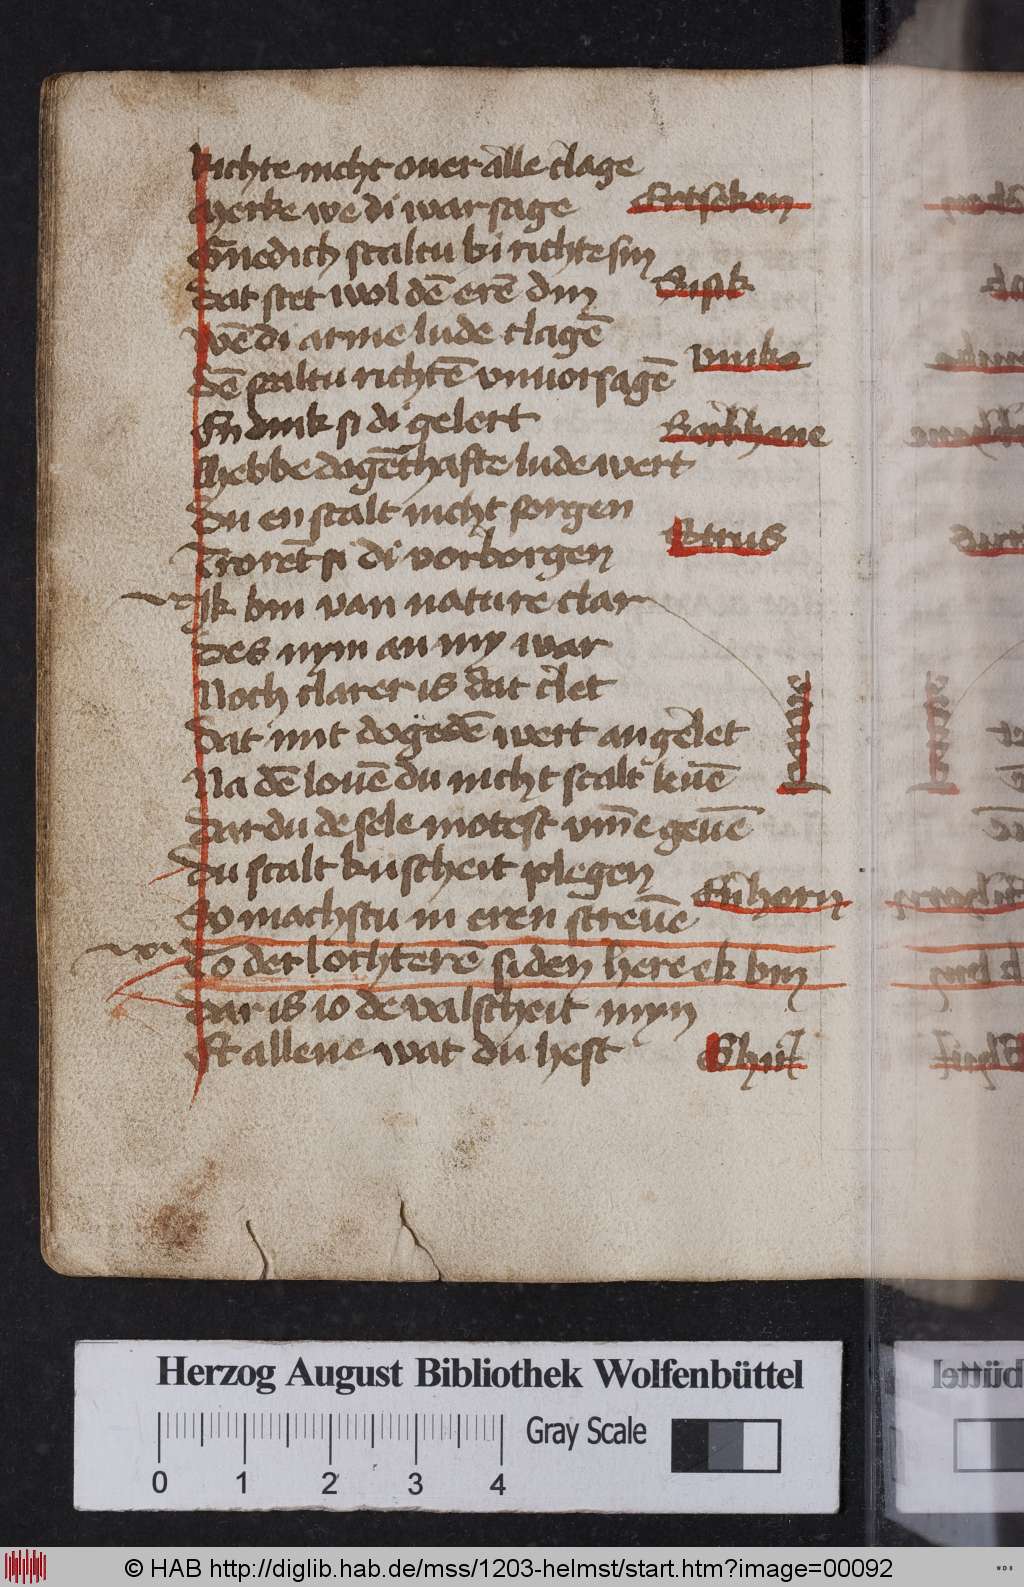 Richte nicht ouer alle clage
Merke we di war sage Ertseken
Gnedich scaltu bi richte sin
dat stet wol dē erē din Sisik
Wē di arme lude clagē
dē scaltu richtē vnuorsagē vinke
En dink si di gelert
hebbe dogēthafte lude wert
du en scalt nicht sorgen
Troret si di vorborgen
Ik bin van nature clar
des nym an my war
Noch clarer is dat clet
dat mit dogedē wert angelet
Na dē louē du nicht scalt keuē
dar du de sele motest vm̄e geuē
du scalt kuscheit plegen
So machstu in eren streuē Eīhorn
To der lochterē siden here ek bin
dar is io de valscheit myn
Et allene wat du hest
Herzog August Bibliothek Wolfenbüttel
0 1 2 3 4
Gray Scale
© HAB http://diglib.hab.de/mss/1203-helmst/start.htm?image=00092